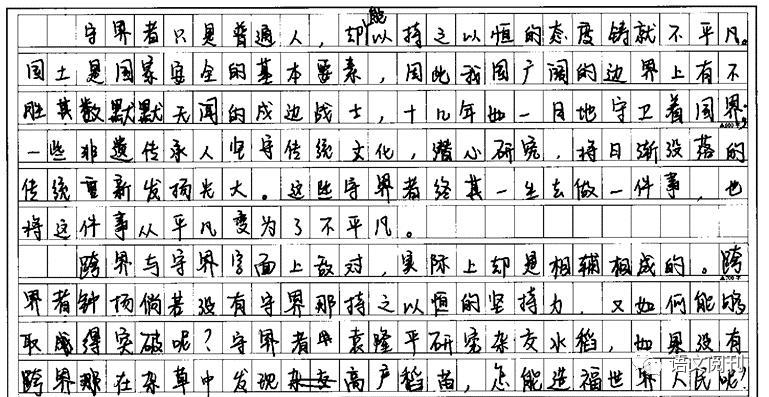 守界者只是普通人，却能以持之以恒的态度铸就不平凡。
国土是国家安全的基本要素，因此我国广阔的边界上有不
胜其数默默无闻的戍边战士，十几年如一日地守卫着国界，
一些非遗传承人坚守传统文化，潜心研究，将日渐没落的
传统重新发扬光大。这些守界者终其一生去做一件事，也
将这件事从平凡变为了不平凡。
跨界与守界字面上敌对，实际上却是相辅相成的。跨
界者钟扬倘若没有守界那持之以恒的坚持力，又如何能够
取得突破呢？守界者袁隆平研究杂交水稻，如果没有
跨界那在杂草中发现高产稻苗，怎能造福世界人民呢？
语文阅刊